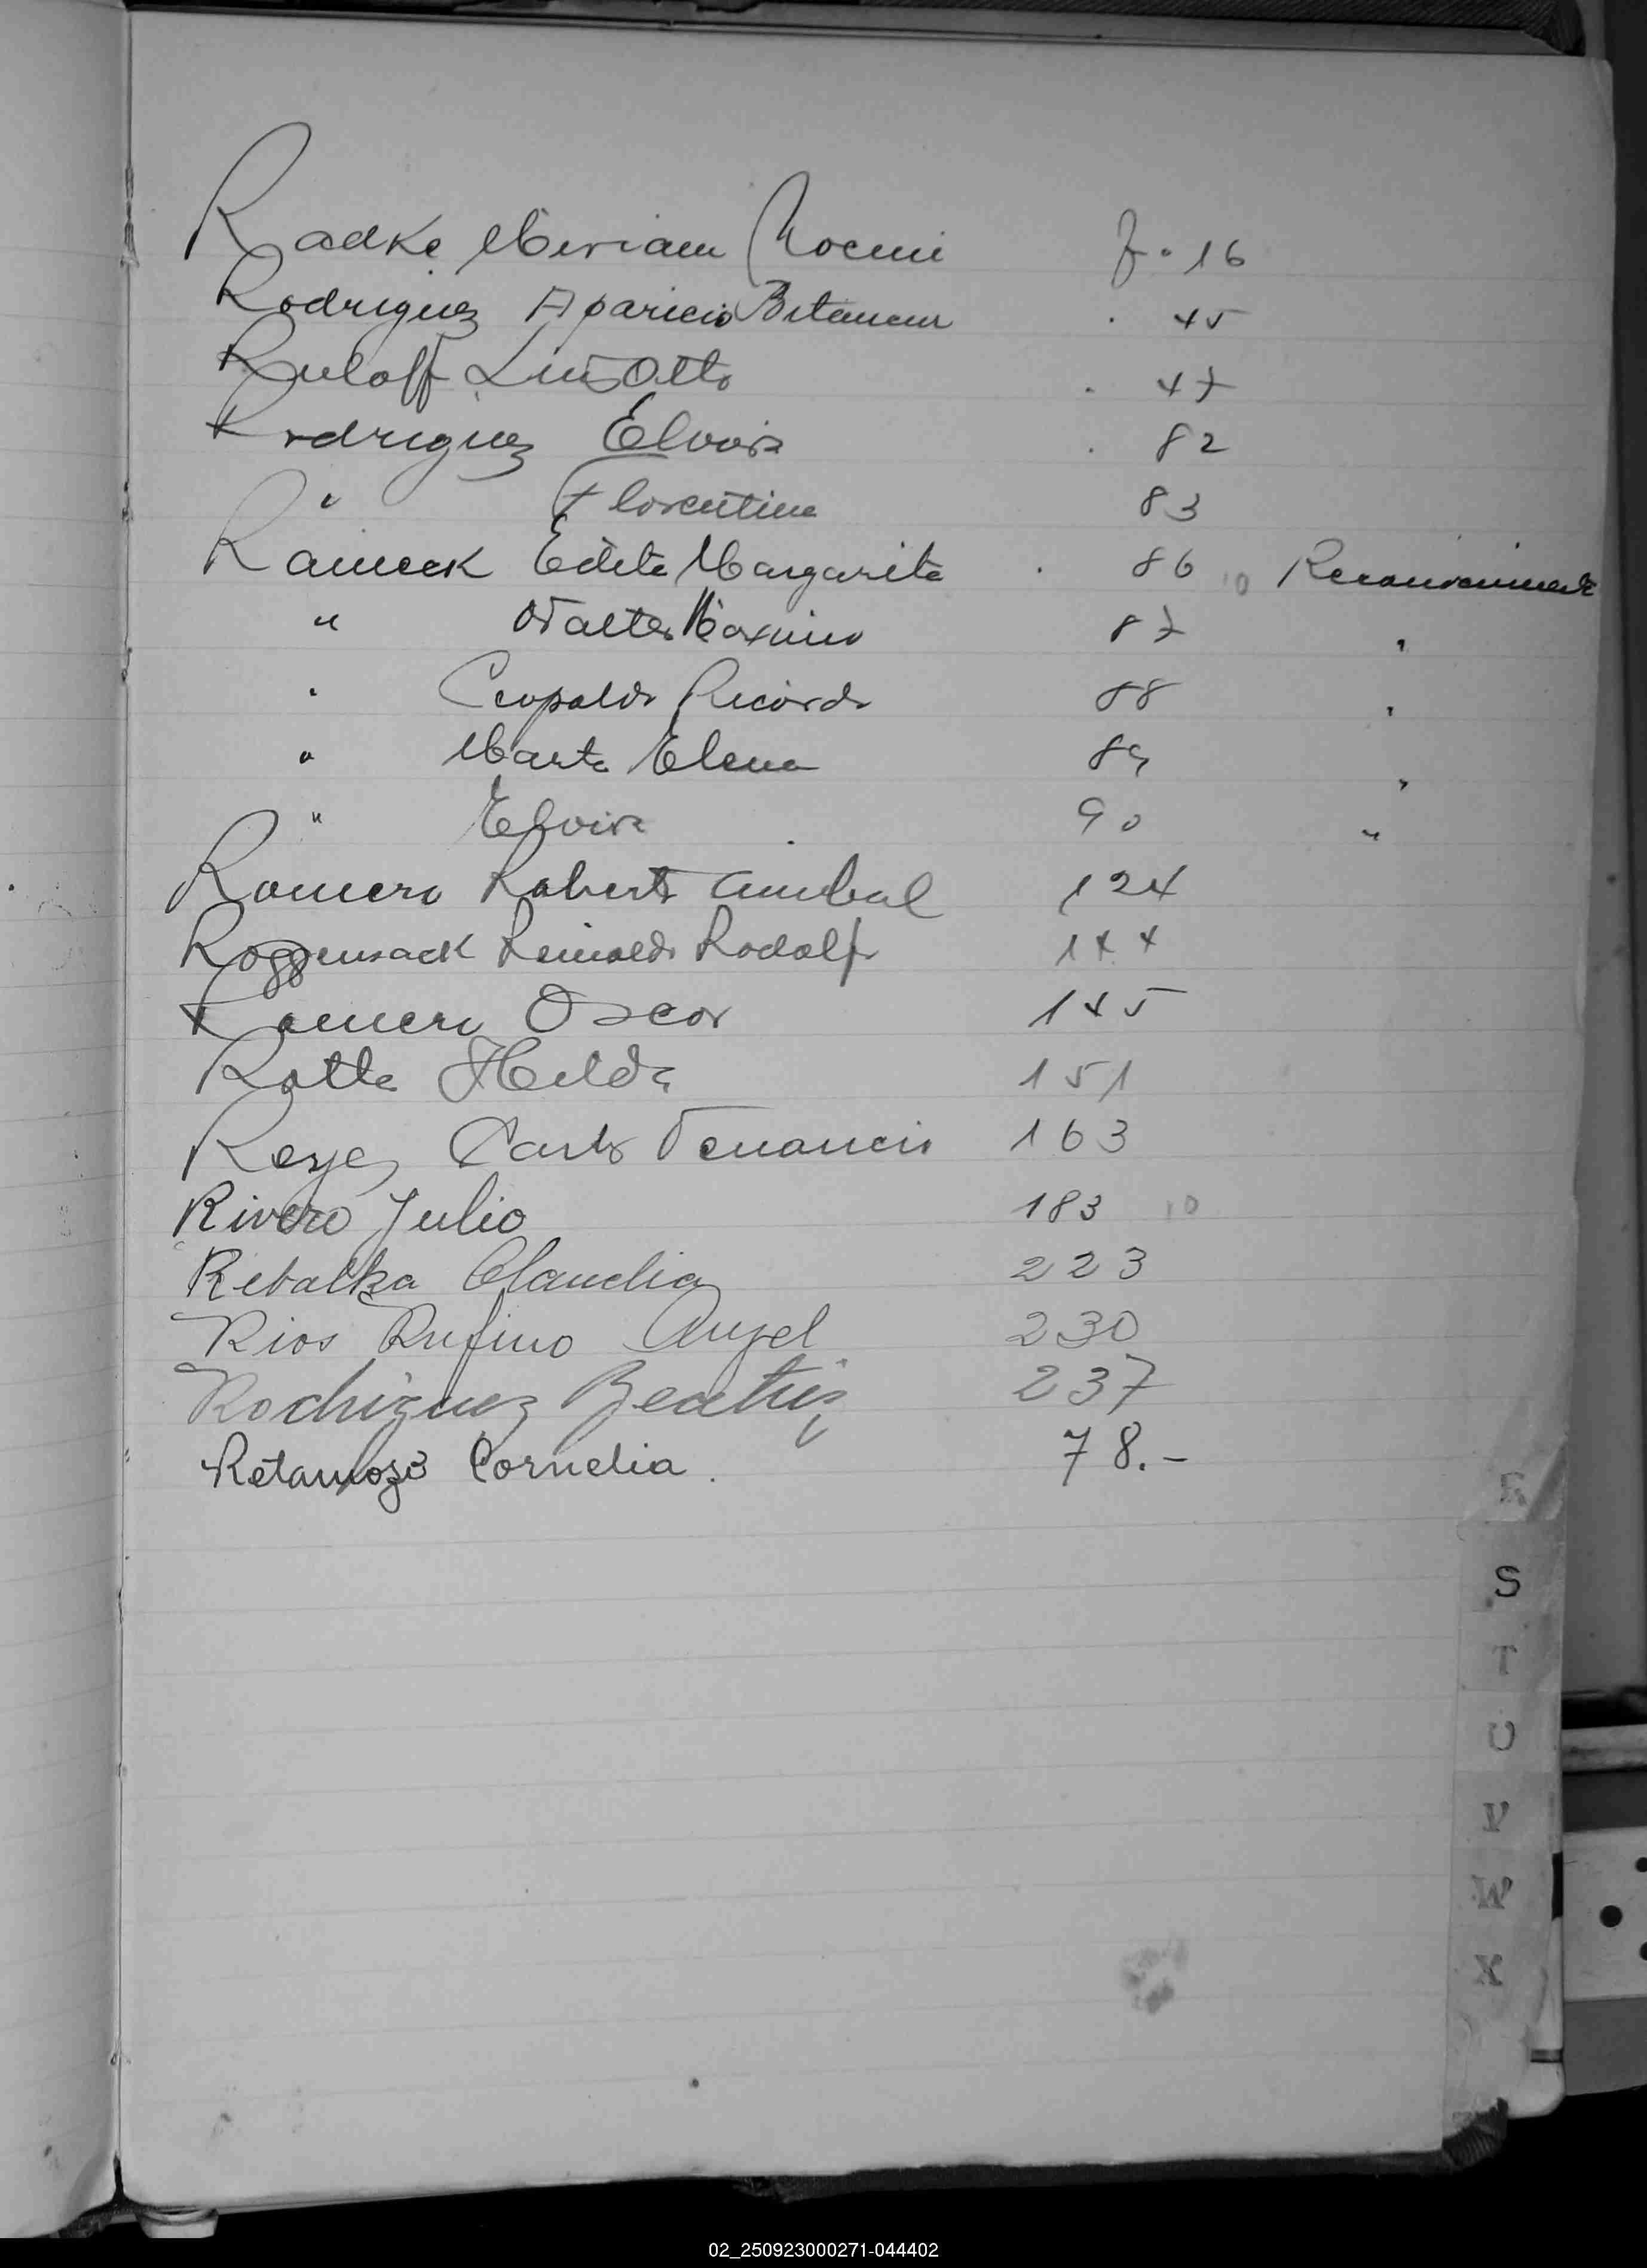 Radke Miriam Noemi f. 16
Rodriguez Aparicio Betancur . 45
Ruloff Luis Otto . 47
Rodriguez Elvira . 82
" Florentina 83
Raineck Edite Margarita . 86 10 Reconocimiento
" Walter Maximo 87 "
" Leopoldo Ricardo 88 "
" Marta Elena 89 "
" Elvira 90 "
Romero Roberto Anibal 124
Roggensack Reinaldo Rodolfo 144
Romero Oscar 145
Rotta Hilda 151
Reyes Carlos Venancio 163
Rivero Julio 183 10
Rebalka Claudia 223
Rios Rufino Angel 230
Rodriguez Beatriz 237
Retamozo Cornelia. 78.-
R
S
T
U
V
W
X
02_250923000271-044402